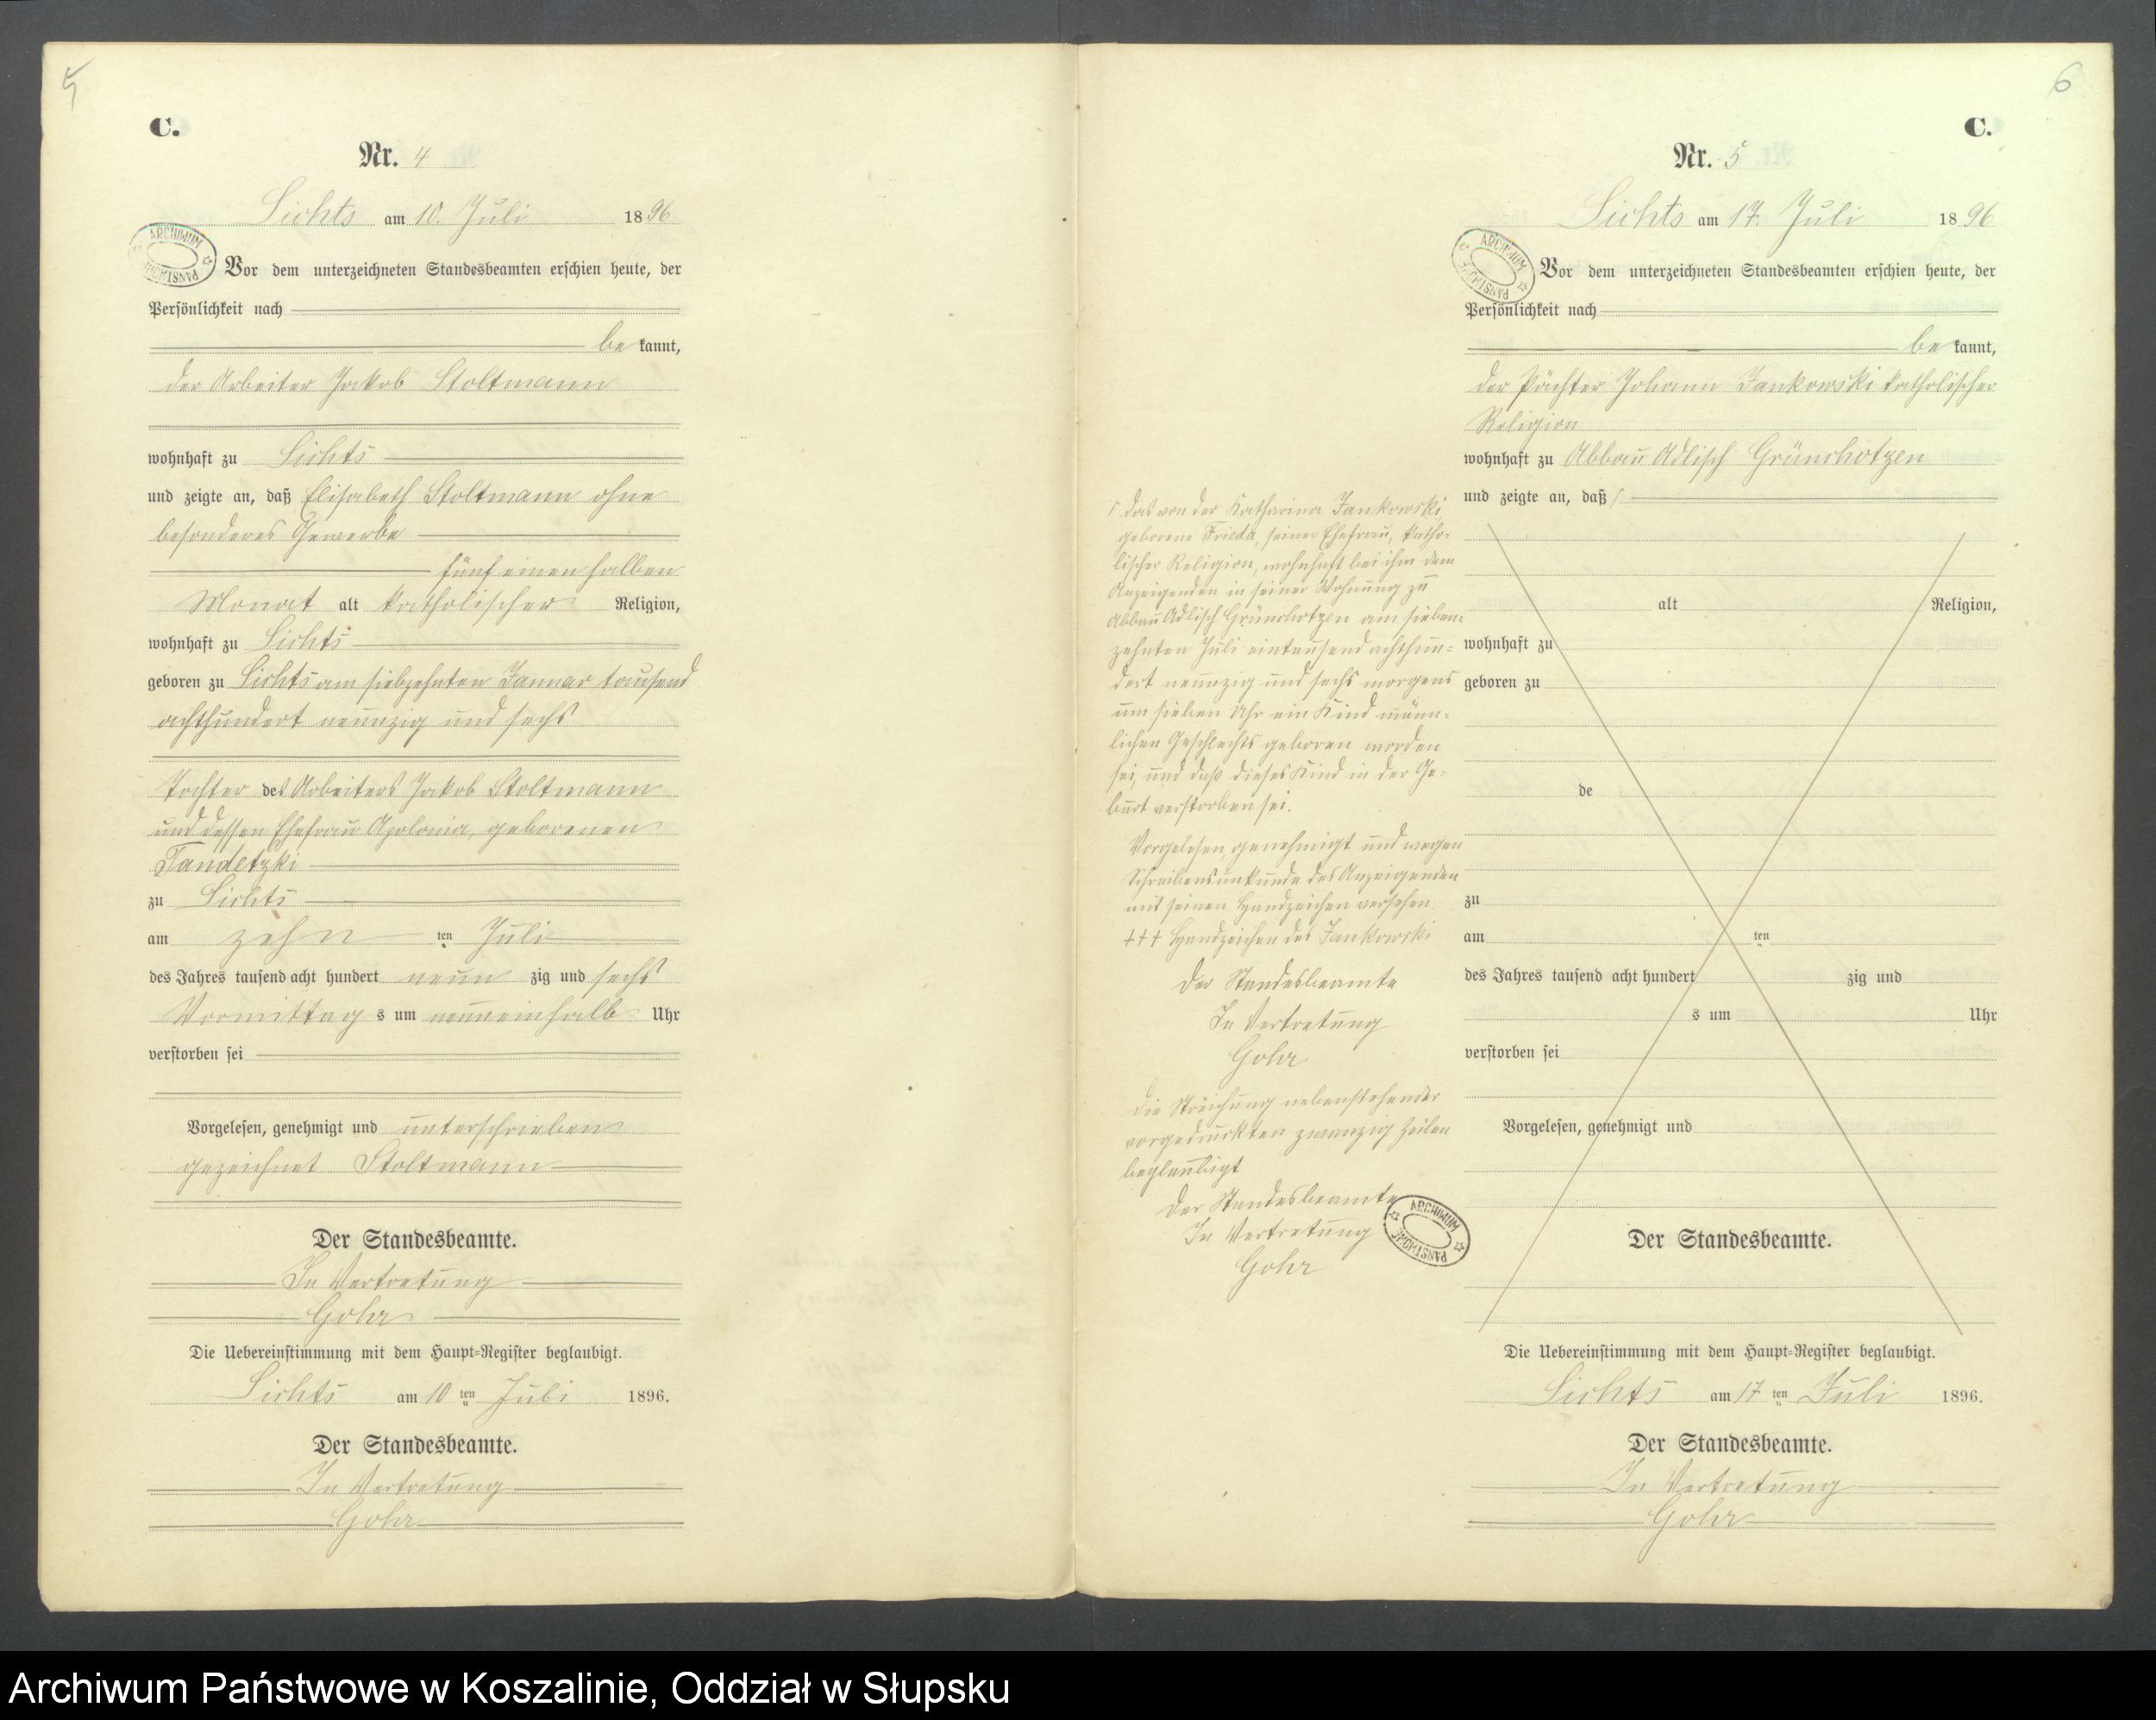 5
C.
Nr. 4
Lichts am 10. Juli 1896
ARCHIWUM PAŃSTWOWE
Vor dem unterzeichneten Standesbeamten erschien heute, der
Persönlichkeit nach
bekannt,
der Arbeiter Jakob Stoltmann
wohnhaft zu Lichts
und zeigte an, daß Elisabeth Stoltmann ohne
besonderes Gewerbe
fünf einen halben
Monat alt katholischer Religion,
wohnhaft zu Lichts
geboren zu Lichts am siebzehnten Januar tausend
achthundert neunzig und sechs
Tochter des Arbeiters Jakob Stoltmann
und dessen Ehefrau Apolonia, geborenen
Tandetzki
zu Lichts
am zehn ten Juli
des Jahres tausend acht hundert neun zig und sechs
Vormittag s um neuneinhalb Uhr
verstorben sei
Vorgelesen, genehmigt und unterschrieben
gezeichnet Stoltmann
Der Standesbeamte.
In Vertretung
Gohr
Die Uebereinstimmung mit dem Haupt-Register beglaubigt.
Lichts am 10 ten Juli 1896.
Der Standesbeamte.
In Vertretung
Gohr
6
C.
Nr. 5
Lichts am 17. Juli 1896
ARCHIWUM PAŃSTWOWE
Vor dem unterzeichneten Standesbeamten erschien heute, der
Persönlichkeit nach
bekannt,
der Pächter Johann Jankowski katholischer
Religion
wohnhaft zu Abbau Adlisch Grünchotzen
und zeigte an, daß
das von der Katharina Jankowski
geborene Frieda, seiner Ehefrau, katho-
lischer Religion, wohnhaft bei ihm dem
Anzeigenden in seiner Wohnung zu
Abbau Adlisch Grünchotzen am sieben-
zehnten Juli eintausend achthun-
dert neunzig und sechs morgens
um sieben Uhr ein Kind männ-
lichen Geschlechts geboren worden
sei, und daß dieses Kind in der Ge-
burt verstorben sei.
Vorgelesen, genehmigt und wegen
Schreibensunkunde des Anzeigenden
mit seinen Handzeichen versehen
+++ Handzeichen des Jankowski
Der Standesbeamte
In Vertretung
Gohr
Die Streichung nebenstehender
vorgedruckten zwanzig Zeilen
beglaubigt
Der Standesbeamte
In Vertretung
Gohr
ARCHIWUM PAŃSTWOWE
alt Religion,
wohnhaft zu
geboren zu
de
zu
am ten
des Jahres tausend acht hundert zig und
s um Uhr
verstorben sei
Vorgelesen, genehmigt und
Der Standesbeamte.
Die Uebereinstimmung mit dem Haupt-Register beglaubigt.
Lichts am 17 ten Juli 1896.
Der Standesbeamte.
In Vertretung
Gohr
Archiwum Państwowe w Koszalinie, Oddział w Słupsku